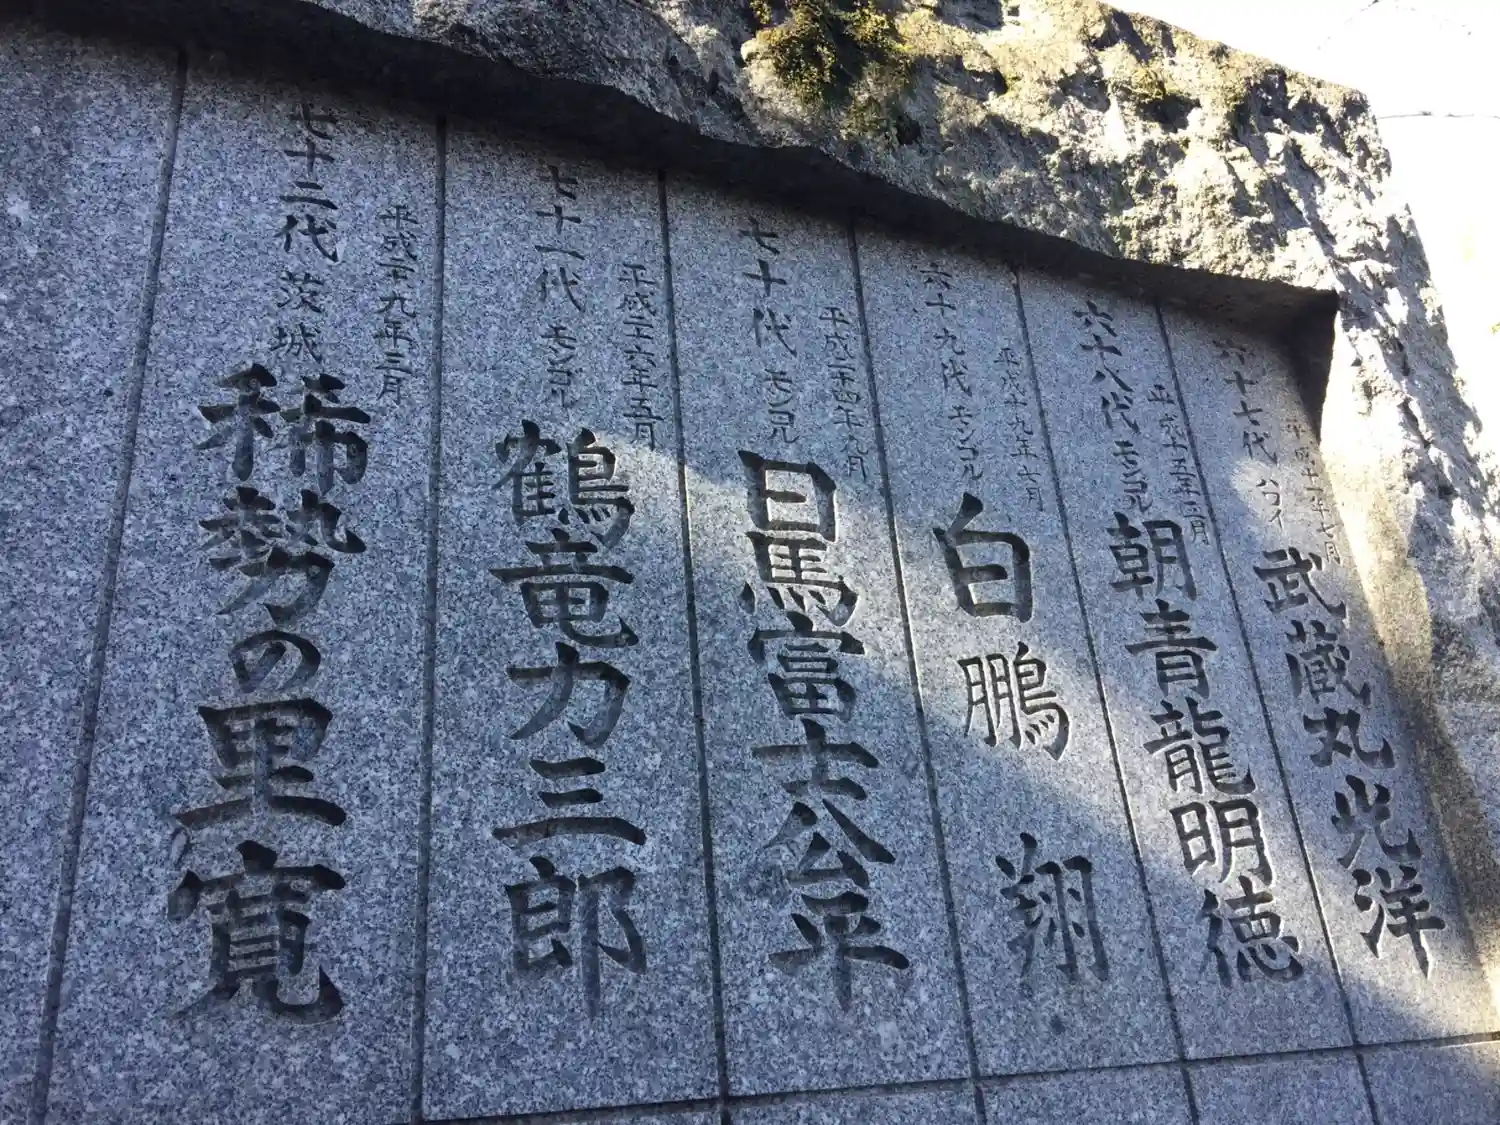 平成十一年七月
六十七代 ハワイ 武蔵丸光洋
平成十五年三月
六十八代 モンゴル 朝青龍明徳
平成十九年七月
六十九代 モンゴル 白鵬 翔
平成二十四年九月
七十代 モンゴル 日馬富士公平
平成二十六年五月
七十一代 モンゴル 鶴竜力三郎
平成二十九年三月
七十二代 茨城 稀勢の里寛